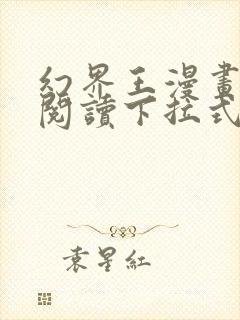 幻界王漫畫
閱讀下拉式
袁星紅